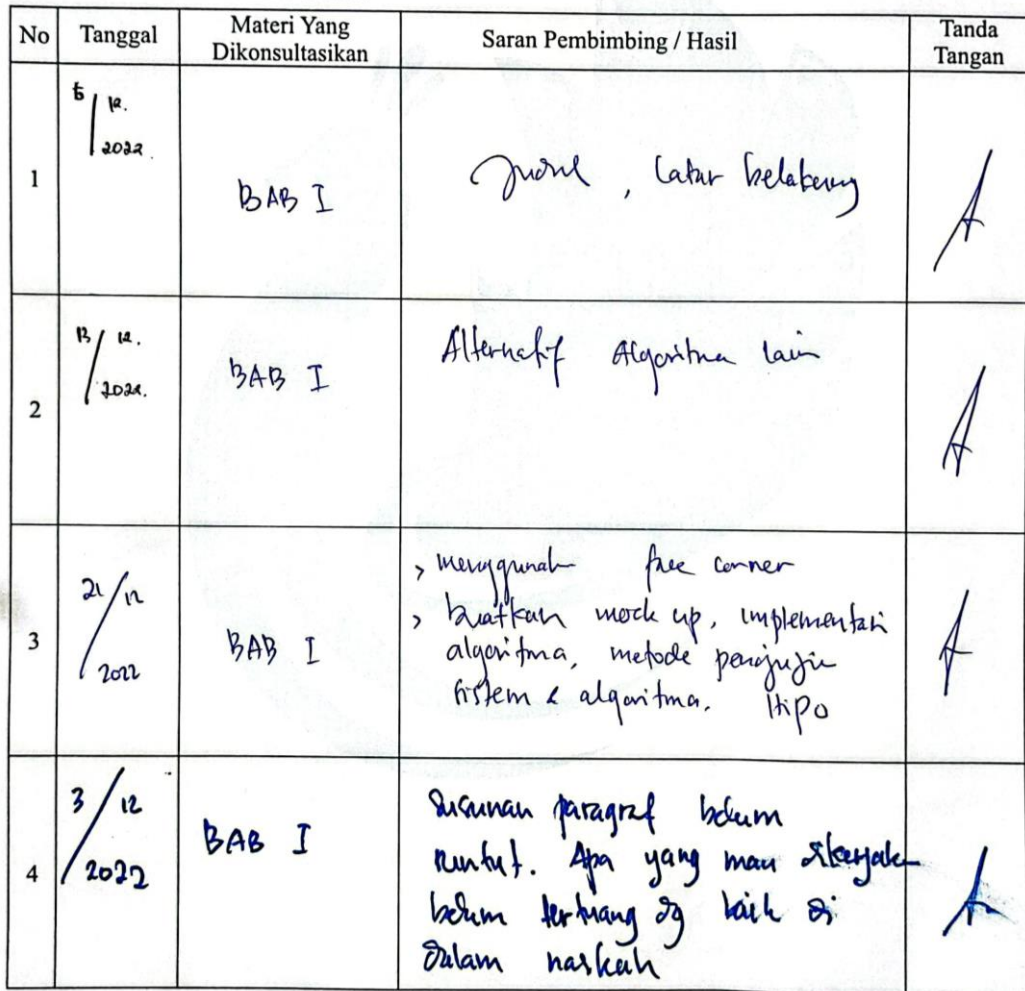 No Tanggal Materi Yang Dikonsultasikan Saran Pembimbing / Hasil Tanda Tangan
5/12.
2022
1 BAB I Judul, latar belakang
13/12.
2022.
2 BAB I Alternatif algoritma lain
21/12
2022
3 BAB I > menggunak free corner
> buatkan mock up, implementasi
algoritma, metode pengujin
sistem & algoritma. Hipo
3/12
2022
4 BAB I Susunan paragraf belum
runtut. Apa yang mau dikerjak
belum tertuang dg baik di
dalam naskah